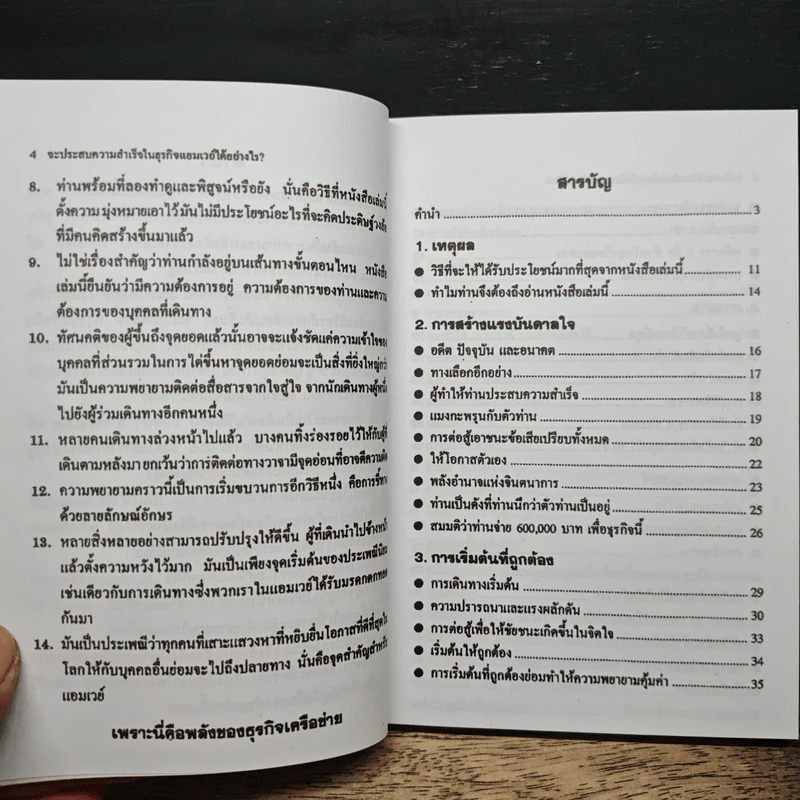 4 จะประสบความสำเร็จในธุรกิจแอมเวย์ได้อย่างไร?
8. ท่านพร้อมที่ลองทำดูและพิสูจน์หรือยัง นั่นคือวิธีที่หนังสือเล่มนี้
ตั้งความมุ่งหมายเอาไว้มันไม่มีประโยชน์อะไรที่จะคิดประดิษฐ์วงล้อ
ที่มีคนคิดสร้างขึ้นมาแล้ว
9. ไม่ใช่เรื่องสำคัญว่าท่านกำลังอยู่บนเส้นทางขั้นตอนไหน หนังสือ
เล่มนี้ยืนยันว่ามีความต้องการอยู่ ความต้องการของท่านและความ
ต้องการของบุคคลที่เดินทาง
10. ทัศนคติของผู้ขึ้นถึงจุดยอดแล้วนั้นอาจจะแจ้งชัดแค่ความเข้าใจของ
บุคคลที่ส่วนรวมในการไต่ขึ้นหาจุดยอดย่อมจะเป็นสิ่งที่ยิ่งใหญ่กว่า
มันเป็นความพยายามติดต่อสื่อสารจากใจสู่ใจ จากนักเดินทางผู้หนึ่ง
ไปยังผู้ร่วมเดินทางอีกคนหนึ่ง
11. หลายคนเดินทางล่วงหน้าไปแล้ว บางคนทิ้งร่องรอยไว้ให้กับผู้ที่
เดินตามหลังมายกเว้นว่าการติดต่อทางวาจามีจุดอ่อนที่อาจตีความผิด
12. ความพยายามคราวนี้เป็นการเริ่มขบวนการอีกวิธีหนึ่ง คือการชี้ทาง
ด้วยลายลักษณ์อักษร
13. หลายสิ่งหลายอย่างสามารถปรับปรุงให้ดีขึ้น ผู้ที่เดินนำไปข้างหน้า
แล้วตั้งความหวังไว้มาก มันเป็นเพียงจุดเริ่มต้นของประเพณีนิยม
เช่นเดียวกับการเดินทางซึ่งพวกเราในแอมเวย์ได้รับมรดกตกทอด
กันมา
14. มันเป็นประเพณีว่าทุกคนที่เสาะแสวงหาที่หยิบยื่นโอกาสที่ดีที่สุดใน
โลกให้กับบุคคลอื่นย่อมจะไปถึงปลายทาง นั่นคือจุดสำคัญสำหรับ
แอมเวย์
เพราะนี่คือพลังของธุรกิจเครือข่าย
สารบัญ
คำนำ 3
1. เหตุผล
● วิธีที่จะให้ได้รับประโยชน์มากที่สุดจากหนังสือเล่มนี้ 11
● ทำไมท่านจึงต้องถึงอ่านหนังสือเล่มนี้ 14
2. การสร้างแรงบันดาลใจ
● อดีต ปัจจุบัน และอนาคต 16
● ทางเลือกอีกอย่าง 17
● ผู้ทำให้ท่านประสบความสำเร็จ 18
● แมงกะพรุนกับตัวท่าน 19
● การต่อสู้เอาชนะข้อเสียเปรียบทั้งหมด 20
● ให้โอกาสตัวเอง 22
● พลังอำนาจแห่งจินตนาการ 23
● ท่านเป็นดังที่ท่านนึกว่าตัวท่านเป็นอยู่ 25
● สมมติว่าท่านจ่าย 600,000 บาท เพื่อธุรกิจนี้ 26
3. การเริ่มต้นที่ถูกต้อง
● การเดินทางเริ่มต้น 29
● ความปรารถนาและแรงผลักดัน 30
● การต่อสู้เพื่อให้ชัยชนะเกิดขึ้นในจิตใจ 33
● เริ่มต้นให้ถูกต้อง 34
● การเริ่มต้นที่ถูกต้องย่อมทำให้ความพยายามคุ้มค่า 35